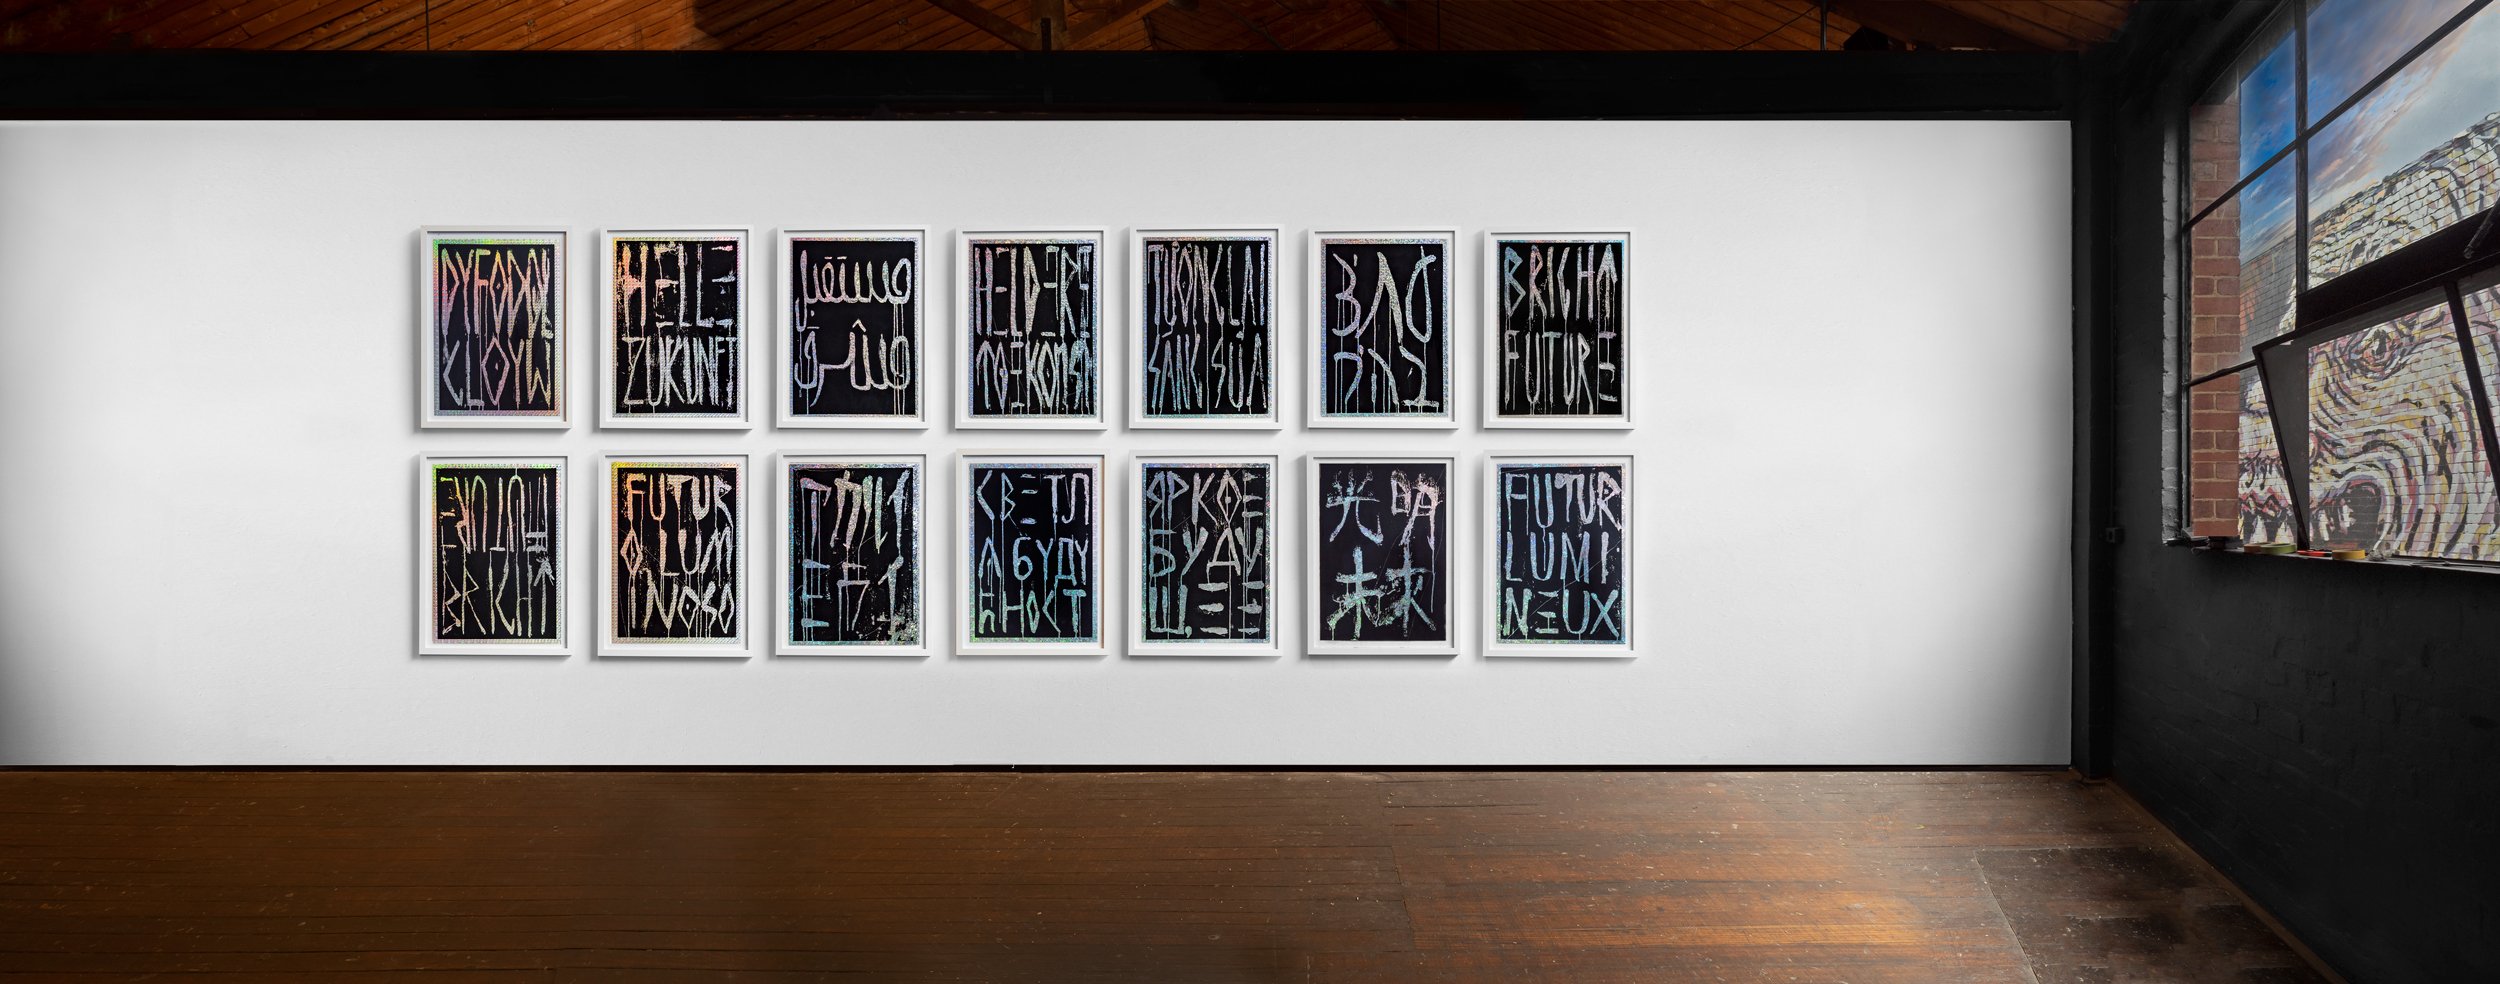 DYFODOL
GLOYW
HELLE
ZUKUNFT
مستقبل
مشرق
HELDERE
TOEKOMST
TƯƠNG LAI
SÁNG SỦA
BRIGHT
FUTURE
FUTURE
BRIGHT
FUTUR
O LUM
INOSO
СВЕТЛ
А БУДУ
ЋНОСТ
ЯРКОЕ
БУДУ
ЩЕЕ
光明
未来
FUTUR
LUMI
NEUX